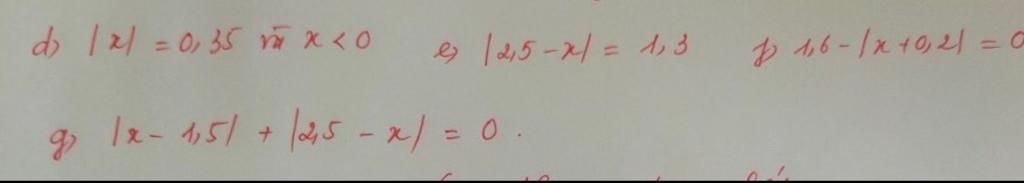 d) |x| = 0,35 và x < 0 e) |2,5 - x| = 1,3 f) 1,6 - |x + 0,2| = 0
g) |x - 1,5| + |2,5 - x| = 0.